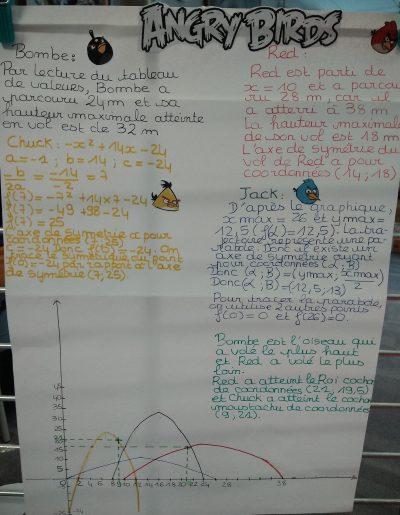 ANGRY BIRDS
Bombe:
Par lecture du tableau
de valeurs, Bombe a
parcouru 24m et sa
hauteur maximale atteinte
en vol est de 32 m
Chuck: -x²+14x-24
a=-1; b=14; c=-24
-b/2a = -14/-2 = 7
f(7) = -7²+14×7-24
f(7) = -49+98-24
f(7) = 25
L'axe de symétrie a pour
coordonnées (7,25)
f(0) = -24. On
trace le symétrique du point
par rapport à l'axe
de symétrie (7,25).
Red:
Red est parti de
x = 10 et a parcou
ru 28 m, car il
a atterri à 38 m
La hauteur maximale
de son vol est 18 m
L'axe de symétrie du
vol de Red a pour
coordonnées (14;18)
Jack:
D'après le graphique,
x max = 26 et y max =
12,5 (f(x) = 12,5). La tra-
jectoire représente une pa-
rabole. Donc il existe un
axe de symétrie ayant
pour coordonnées (α;β)
Donc (α;β)=(ymax; xmax/2)
Donc (α;β) = (12,5;13)
Pour tracer la parabole,
on utilise 2 autres points
f(0) = 0 et f(26)=0.
Bombe est l'oiseau qui
a volé le plus haut
et Red a volé le plus
loin.
Red a atteint le Roi cochon
de coordonnées (21;19,5)
et Chuck a atteint le cochon
moustachu de coordonnées
(9,21).
45
35
30
25
20
15
10
5
0 2 4 6 8 9 10 12 14 16 18 20 22 24 28 38
-24